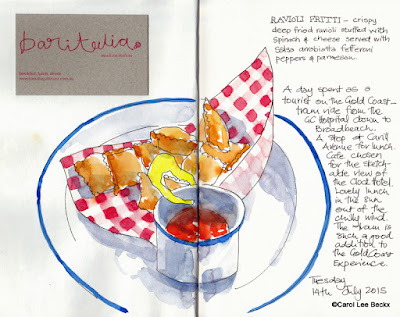 baritalia
RAVIOLI FRITTI – crispy
deep fried ravioli stuffed with
spinach & cheese served with
salsa arrabiata fefferoni
peppers & parmesan.
A day spent as a
tourist on the Gold Coast –
tram ride from the
GC Hospital down to
Broadbeach.
A stop at Cavill
Avenue for lunch.
Cafe chosen
for the sketch-
able view of
the Clock Hotel.
Lovely lunch
in the sun
out of the
chilly wind
The tram is
such a good
addition to
the Gold Coast
Experience.
Tuesday
14th July 2015
©Carol Lee Beckx